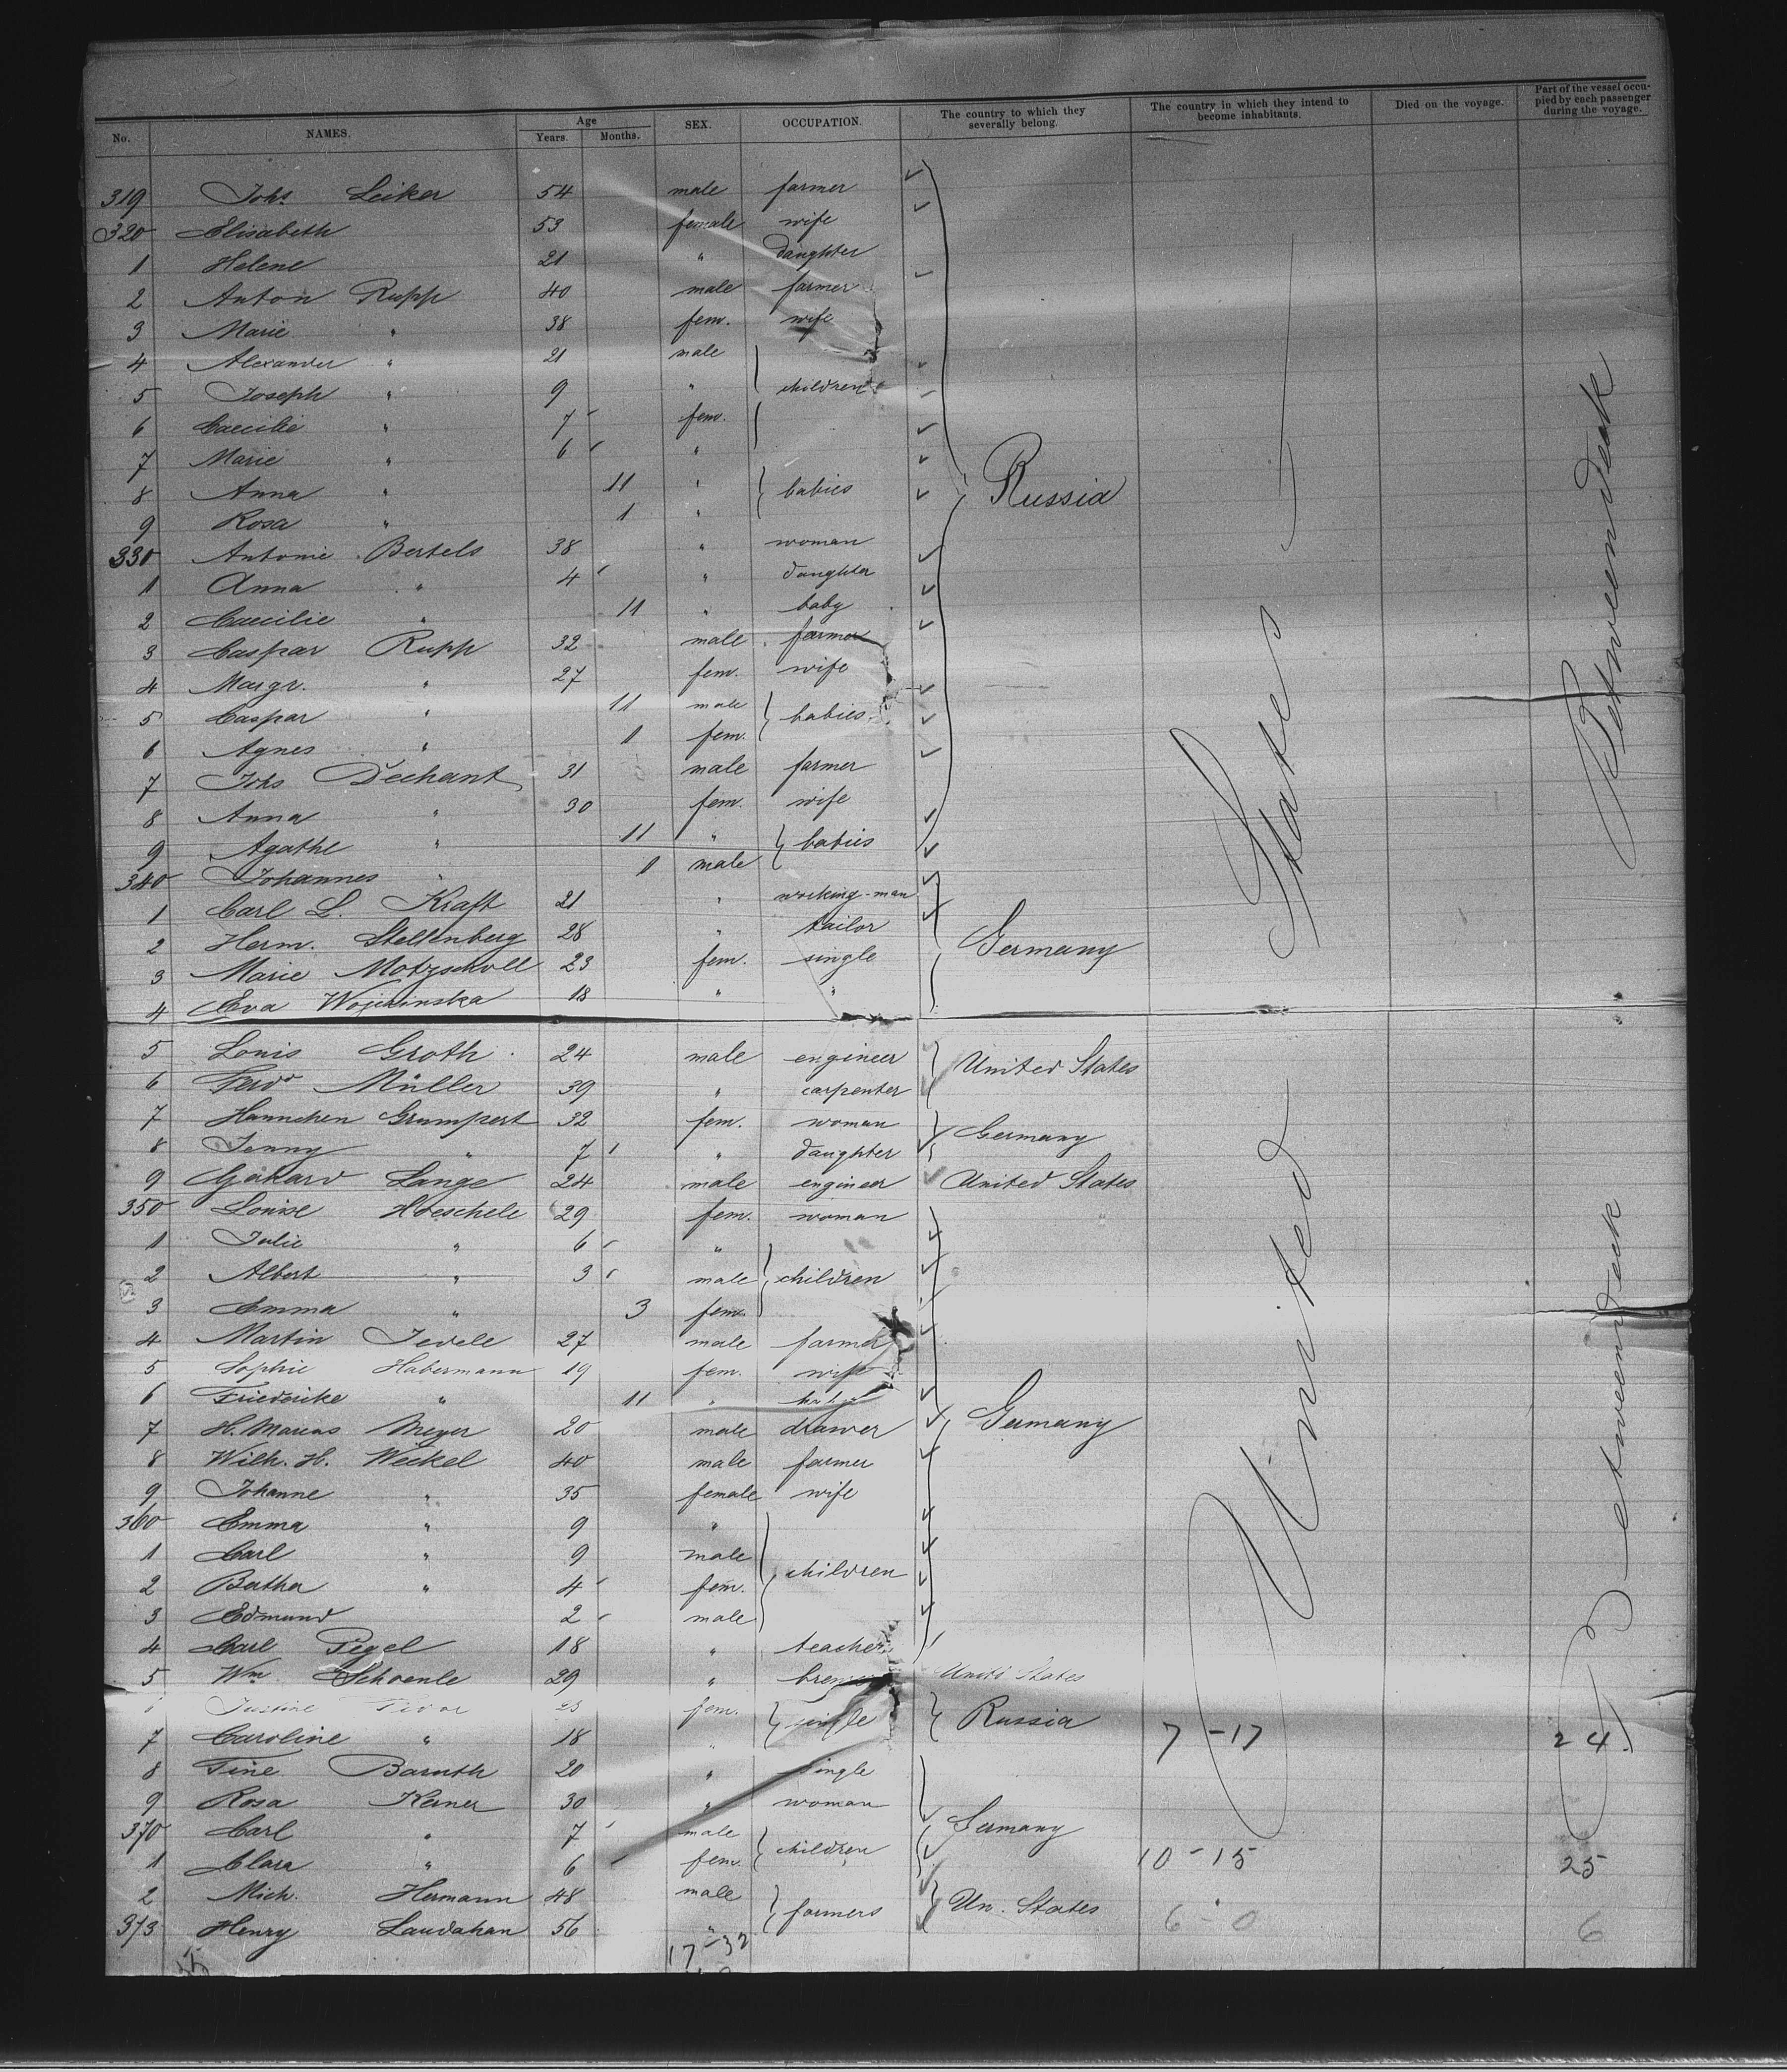 No. NAMES. Age Years. Months. SEX. OCCUPATION. The country to which they severally belong. The country in which they intend to become inhabitants. Died on the voyage. Part of the vessel occupied by each passenger during the voyage.
319 Johs Leiker 54 male farmer
320 Elisabeth 53 female wife
1 Helene 21 " daughter
2 Anton Rupp 40 male farmer
3 Marie " 38 fem. wife
4 Alexander " 21 male
5 Joseph " 9 " children
6 Caecilie " 7 fem.
7 Marie " 6 "
8 Anna " 11 " babies Russia
9 Rosa " 1 "
330 Antonie Bertels 38 " woman
1 Anna " 4 " daughter
2 Caecilie " 11 " baby
3 Caspar Rupp 32 male farmer
4 Margr. " 27 fem. wife
5 Caspar " 11 male babies
6 Agnes " 1 fem.
7 Johs Dechant 31 male farmer
8 Anna " 30 fem. wife
9 Agathe " 11 " babies
340 Johannes " 1 male
1 Carl L. Kraft 21 " working-man
2 Herm. Stellenberg 28 " tailor Germany
3 Marie 23 fem. single
4 Eva 18 " "
5 Louis Groth 24 male engineer United States
6 Ferdr Müller 39 " carpenter
7 Hannchen Grumpert 32 fem. woman Germany
8 Jenny " 7 " daughter
9 Lange 24 male engineer United States
350 Louise Hoeschele 29 fem. woman
1 Julie " 6 "
2 Albert " 3 male children
3 Emma " 3 fem.
4 Martin Jedele 27 male farmer
5 Sophie Habermann 19 fem. wife
6 Friederike " 11 " baby
7 H. Marcus Meyer 20 male drawer Germany
8 Wilh. H. Weckel 40 male farmer
9 Johanne " 35 female wife
360 Emma " 9 "
1 Carl " 9 male children
2 Bertha " 4 fem.
3 Edmund 2 male
4 Carl Pegel 18 " teacher
5 Wm Schoenle 29 " United States
6 Justine 23 fem. single Russia
7 Caroline " 18 " 7-17 24
8 Tine Baruth 20 " single
9 Rosa Kerner 30 " woman Germany
370 Carl " 7 male children
1 Clara " 6 fem. 10-15 25
2 Mich. Hermann 48 male farmers Un. States
373 Henry Landahan 56 " 6-0 6
17-32
United States
Betweendeck
Betweendeck